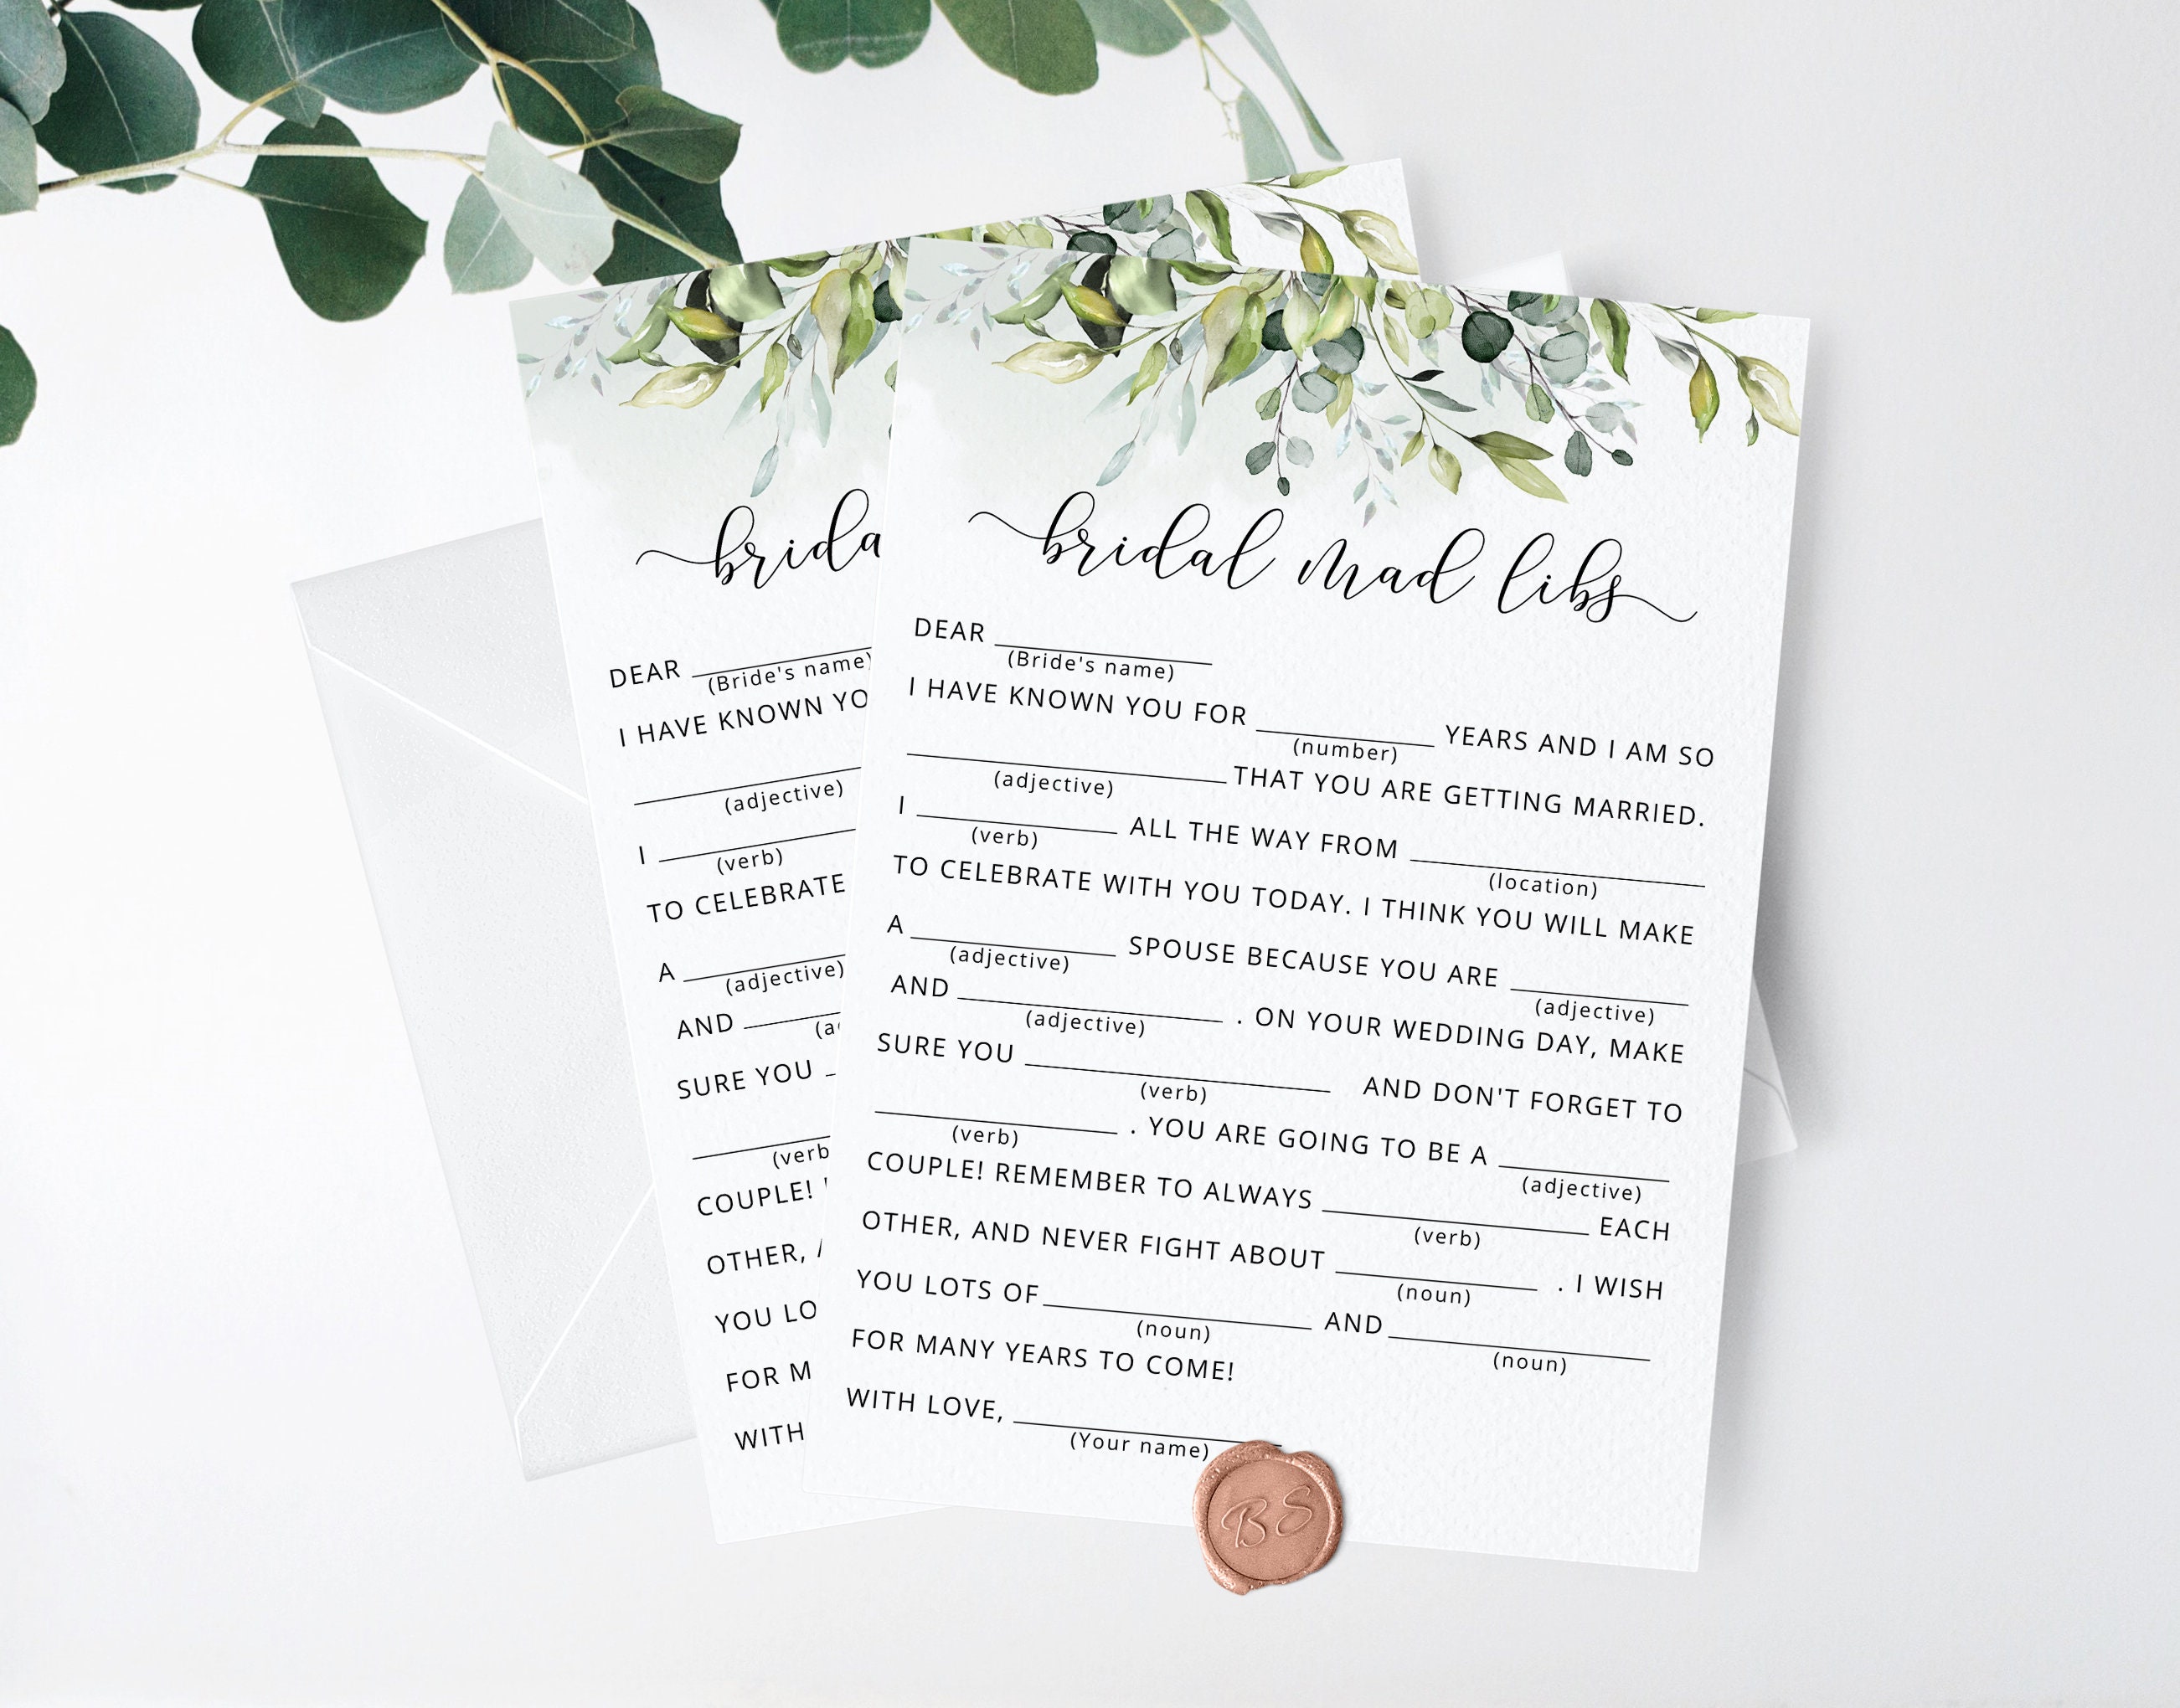 bridal mad libs
DEAR ____________
(Bride's name)
I HAVE KNOWN YOU FOR ____________ YEARS AND I AM SO
(number)
____________ THAT YOU ARE GETTING MARRIED.
(adjective)
I ____________ ALL THE WAY FROM ____________
(verb) (location)
TO CELEBRATE WITH YOU TODAY. I THINK YOU WILL MAKE
A ____________ SPOUSE BECAUSE YOU ARE ____________
(adjective) (adjective)
AND ____________ . ON YOUR WEDDING DAY, MAKE
(adjective)
SURE YOU ____________ AND DON'T FORGET TO
(verb)
____________ . YOU ARE GOING TO BE A ____________
(verb) (adjective)
COUPLE! REMEMBER TO ALWAYS ____________ EACH
(verb)
OTHER, AND NEVER FIGHT ABOUT ____________ . I WISH
(noun)
YOU LOTS OF ____________ AND ____________
(noun) (noun)
FOR MANY YEARS TO COME!
WITH LOVE, ____________
(Your name)
BS
brida
DEAR ____________
(Bride's name)
I HAVE KNOWN YO
____________
(adjective)
I ____________
(verb)
TO CELEBRATE
A ____________
(adjective)
AND ____________
(a
SURE YOU _
____________
(verb
COUPLE!
OTHER,
YOU LO
FOR M
WITH